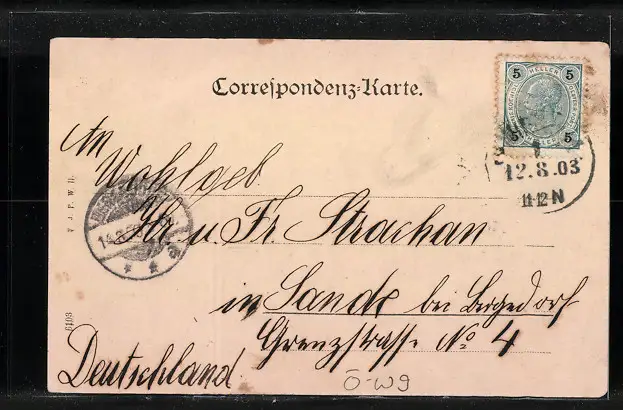 Correspondenz-Karte.
5 HELLER 5
5 5
12.8.03
11-12N
An
Wohlgeb.
Hr. u. Fr. Strachan
in Sande bei Bergedorf
Grenzstrasse No 4
Deutschland
Ö-W9
F. J. P. W. II.
6103